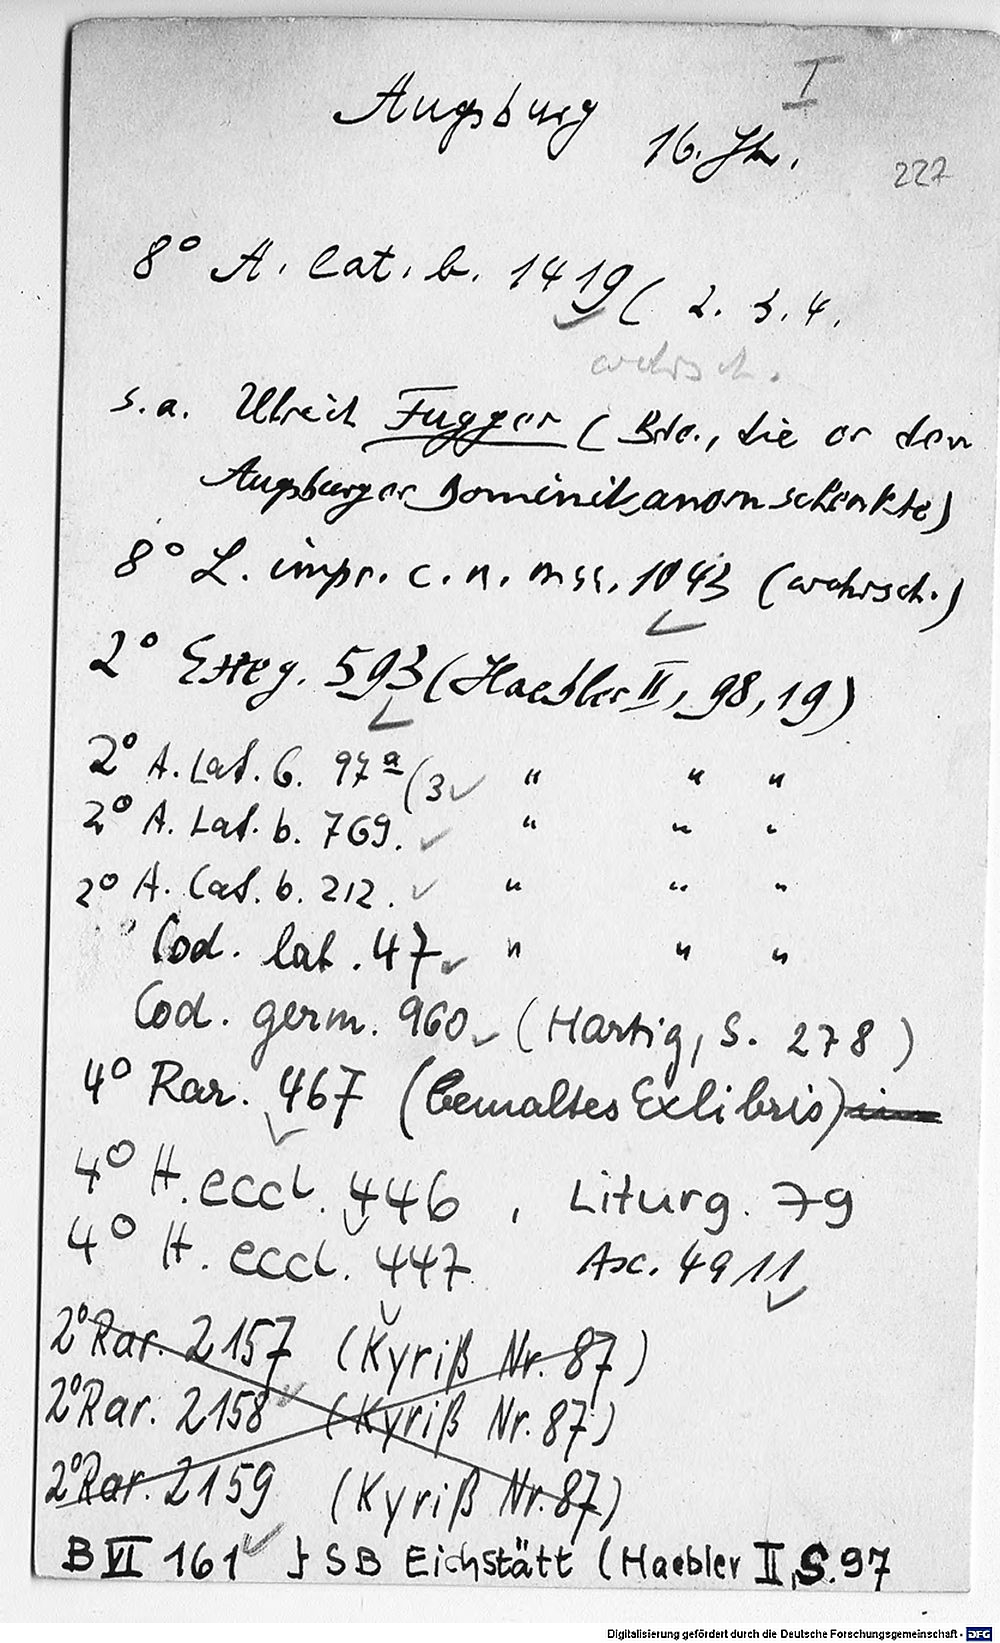 I
Augsburg
16. Jh.
227
8° A. lat. b. 1419 ( 2. 3. 4.
wahrsch.
s. a. Ulrich Fugger ( Bde., die er den
Augsburger Dominikanern schenkte)
8° L. impr. c. n. mss. 1043 (wahrsch.)
2° 593 (Haebler II, 98, 19)
2° A. Lat. b. 97ª (3 " " "
2° A. Lat. b. 769. " " "
2° A. Lat. b. 212. " " "
Cod. lat. 47 " " "
Cod. germ. 960 (Hartig, S. 278)
4° Rar. 467 (bemaltes Exlibris)
4° H. eccl. 446 , Liturg. 79
4° H. eccl. 447 Asc. 4911
2° Rar. 2157 (Kyriß Nr. 87)
2° Rar. 2158 (Kyriß Nr. 87)
2° Rar. 2159 (Kyriß Nr. 87)
B VI 161 } SB Eichstätt (Haebler II, S. 97
Digitalisierung gefördert durch die Deutsche Forschungsgemeinschaft - DFG